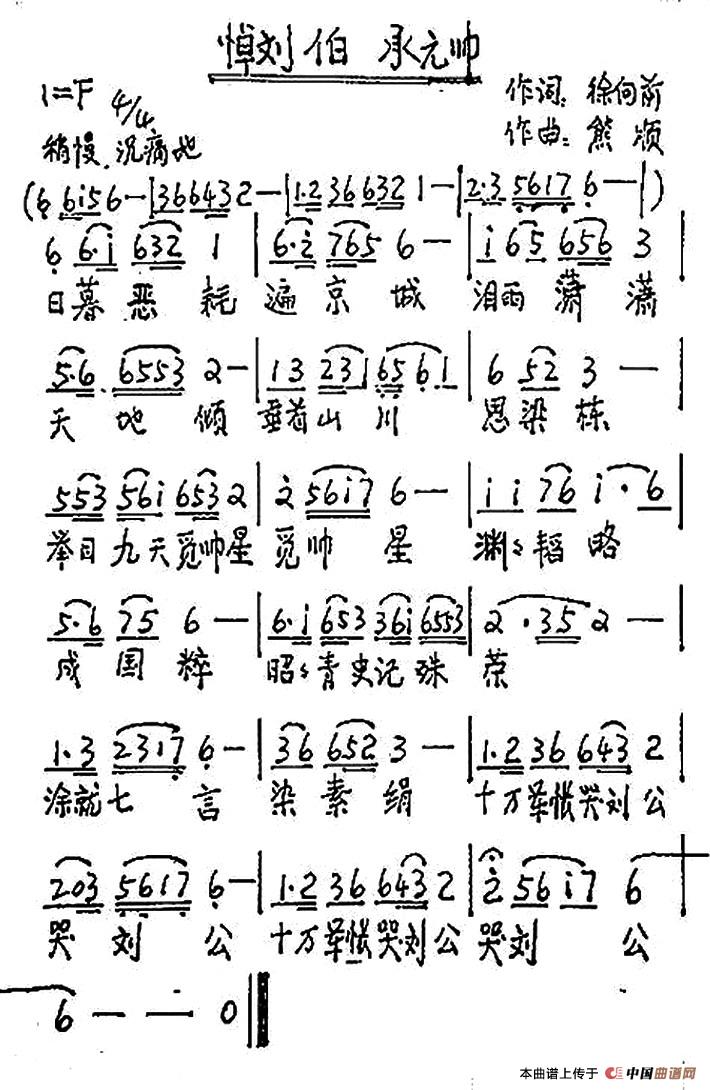 悼刘伯承元帅
1=F 4/4 作词：徐向前
稍慢.沉痛地 作曲：熊频
(6 6i56—|366432—|1·236632 1—|2·3 5617 6—|)
6 6·i 632 1 | 6·i 765 6— | i 65 656 3 |
日暮恶耗遍京城 泪雨萧潇
5·6 6553 2—|13 231 6561|6 52 3 —
天地倾垂首山川 思梁栋
553 56i 653 2 | 2 56i7 6— | i i 76 i·6 |
举目九天觅帅星觅帅星 渊〻韬略
5·6 75 6—|6·i 653 36i 6553|2·35 2—
成国粹 昭〻青史记殊荣
1·3 2317 6—|36 652 3—|1·2 36 643 2
涂就七言 染素绢 十万军帐哭刘公
203 5617 6—|1·2 36 643 2|2 56i7 6
哭刘公 十万军帐哭刘公哭刘公
6 — — 0
本曲谱上传于 中国曲谱网